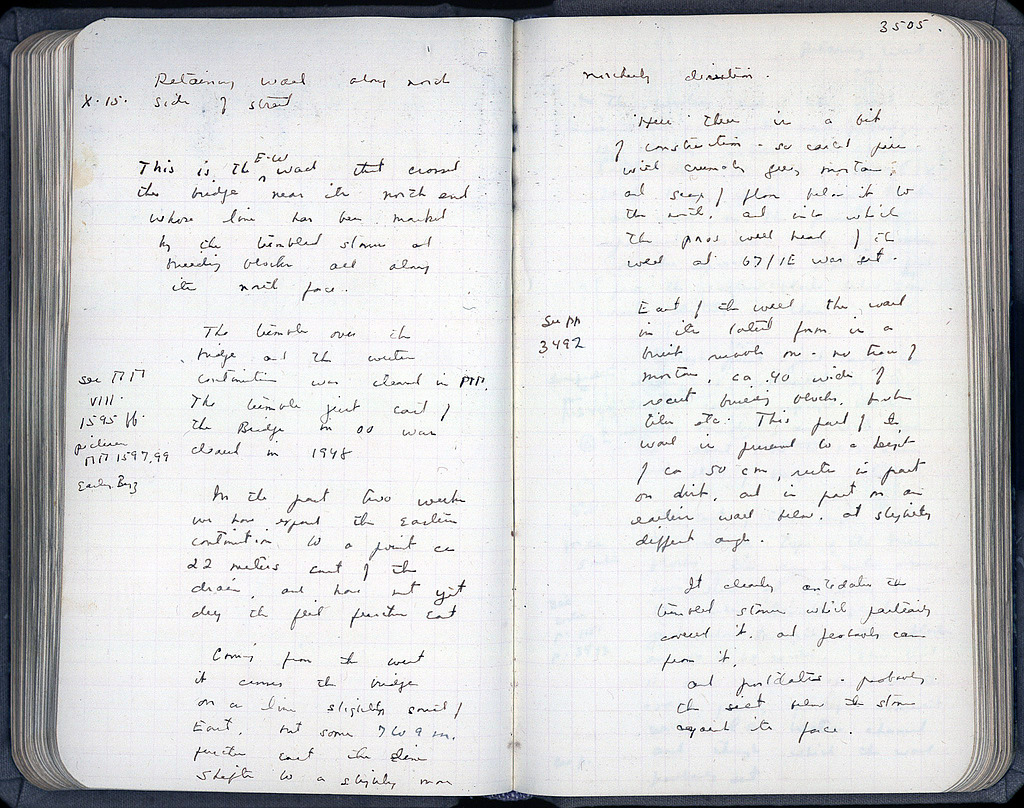 Retaining wall along north
X.15. side of street
This is the E-W wall that crossed
the bridge near its north end
whose line has been marked
by the tumbled stones at
building blocks all along
its north face.
The tumble over the
bridge and the western
see ΠΠ continuation was cleared in ΠΠ.
VIII. The tumble just east of
1595 ff. the Bridge in OO was
pictures cleared in 1948
ΠΠ 1597,99
Early Byz
In the past two weeks
we have exposed the Eastern
continuation to a point ca
22 meters east of the
drain, and have not yet
dug the further east
Coming from the west
it crosses the bridge
on a line slightly south of
East, but some 7 to 9 m.
further east the line
shifts to a slightly more
3505.
northerly direction.
Here there is a bit
of construction - so called pier
with crumbly grey mortar,
and scrap of floor below it to
the north, and into which
the poros well head of the
well at 67/ΙΕ was set.
East of the well the wall
see ΠΠ in its latest form is a
3492 built rubble one - no trace of
mortar, ca .40 wide of
reused building blocks, broken
tiles etc. This part of the
wall is preserved to a height
of ca 50 cm, rests in part
on dirt, and in part on an
earlier wall below, at slightly
different angle.
It clearly antedates the
tumbled stones which partially
covered it, and probably came
from it,
and postdates - probably
the silt below the stones
against its face.